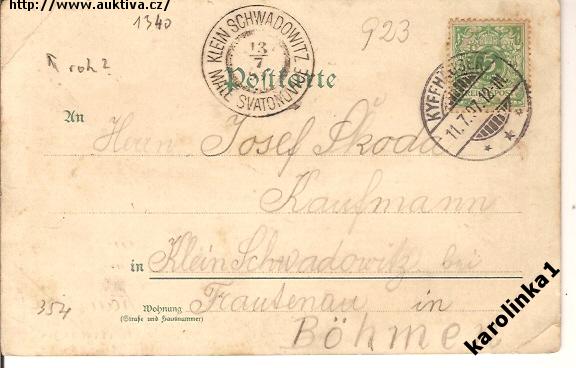 http://www.auktiva.cz/
1340
923
roh?
KLEIN SCHWADOWITZ
13
7
MALÉ SVATOŇOVICE
Postkarte
KYFFHÄUSER
11.7.
5
An
Herrn Josef Škoda
Kaufmann
in Klein Schwadowitz bei
Trautenau in
Böhmen
354
Wohnung
(Straße und Hausnummer)
karolinka1